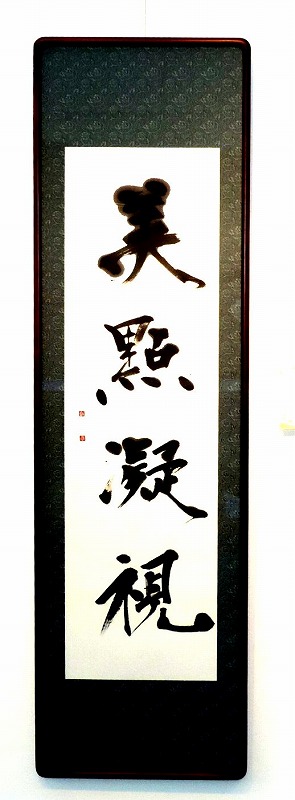 美點凝視